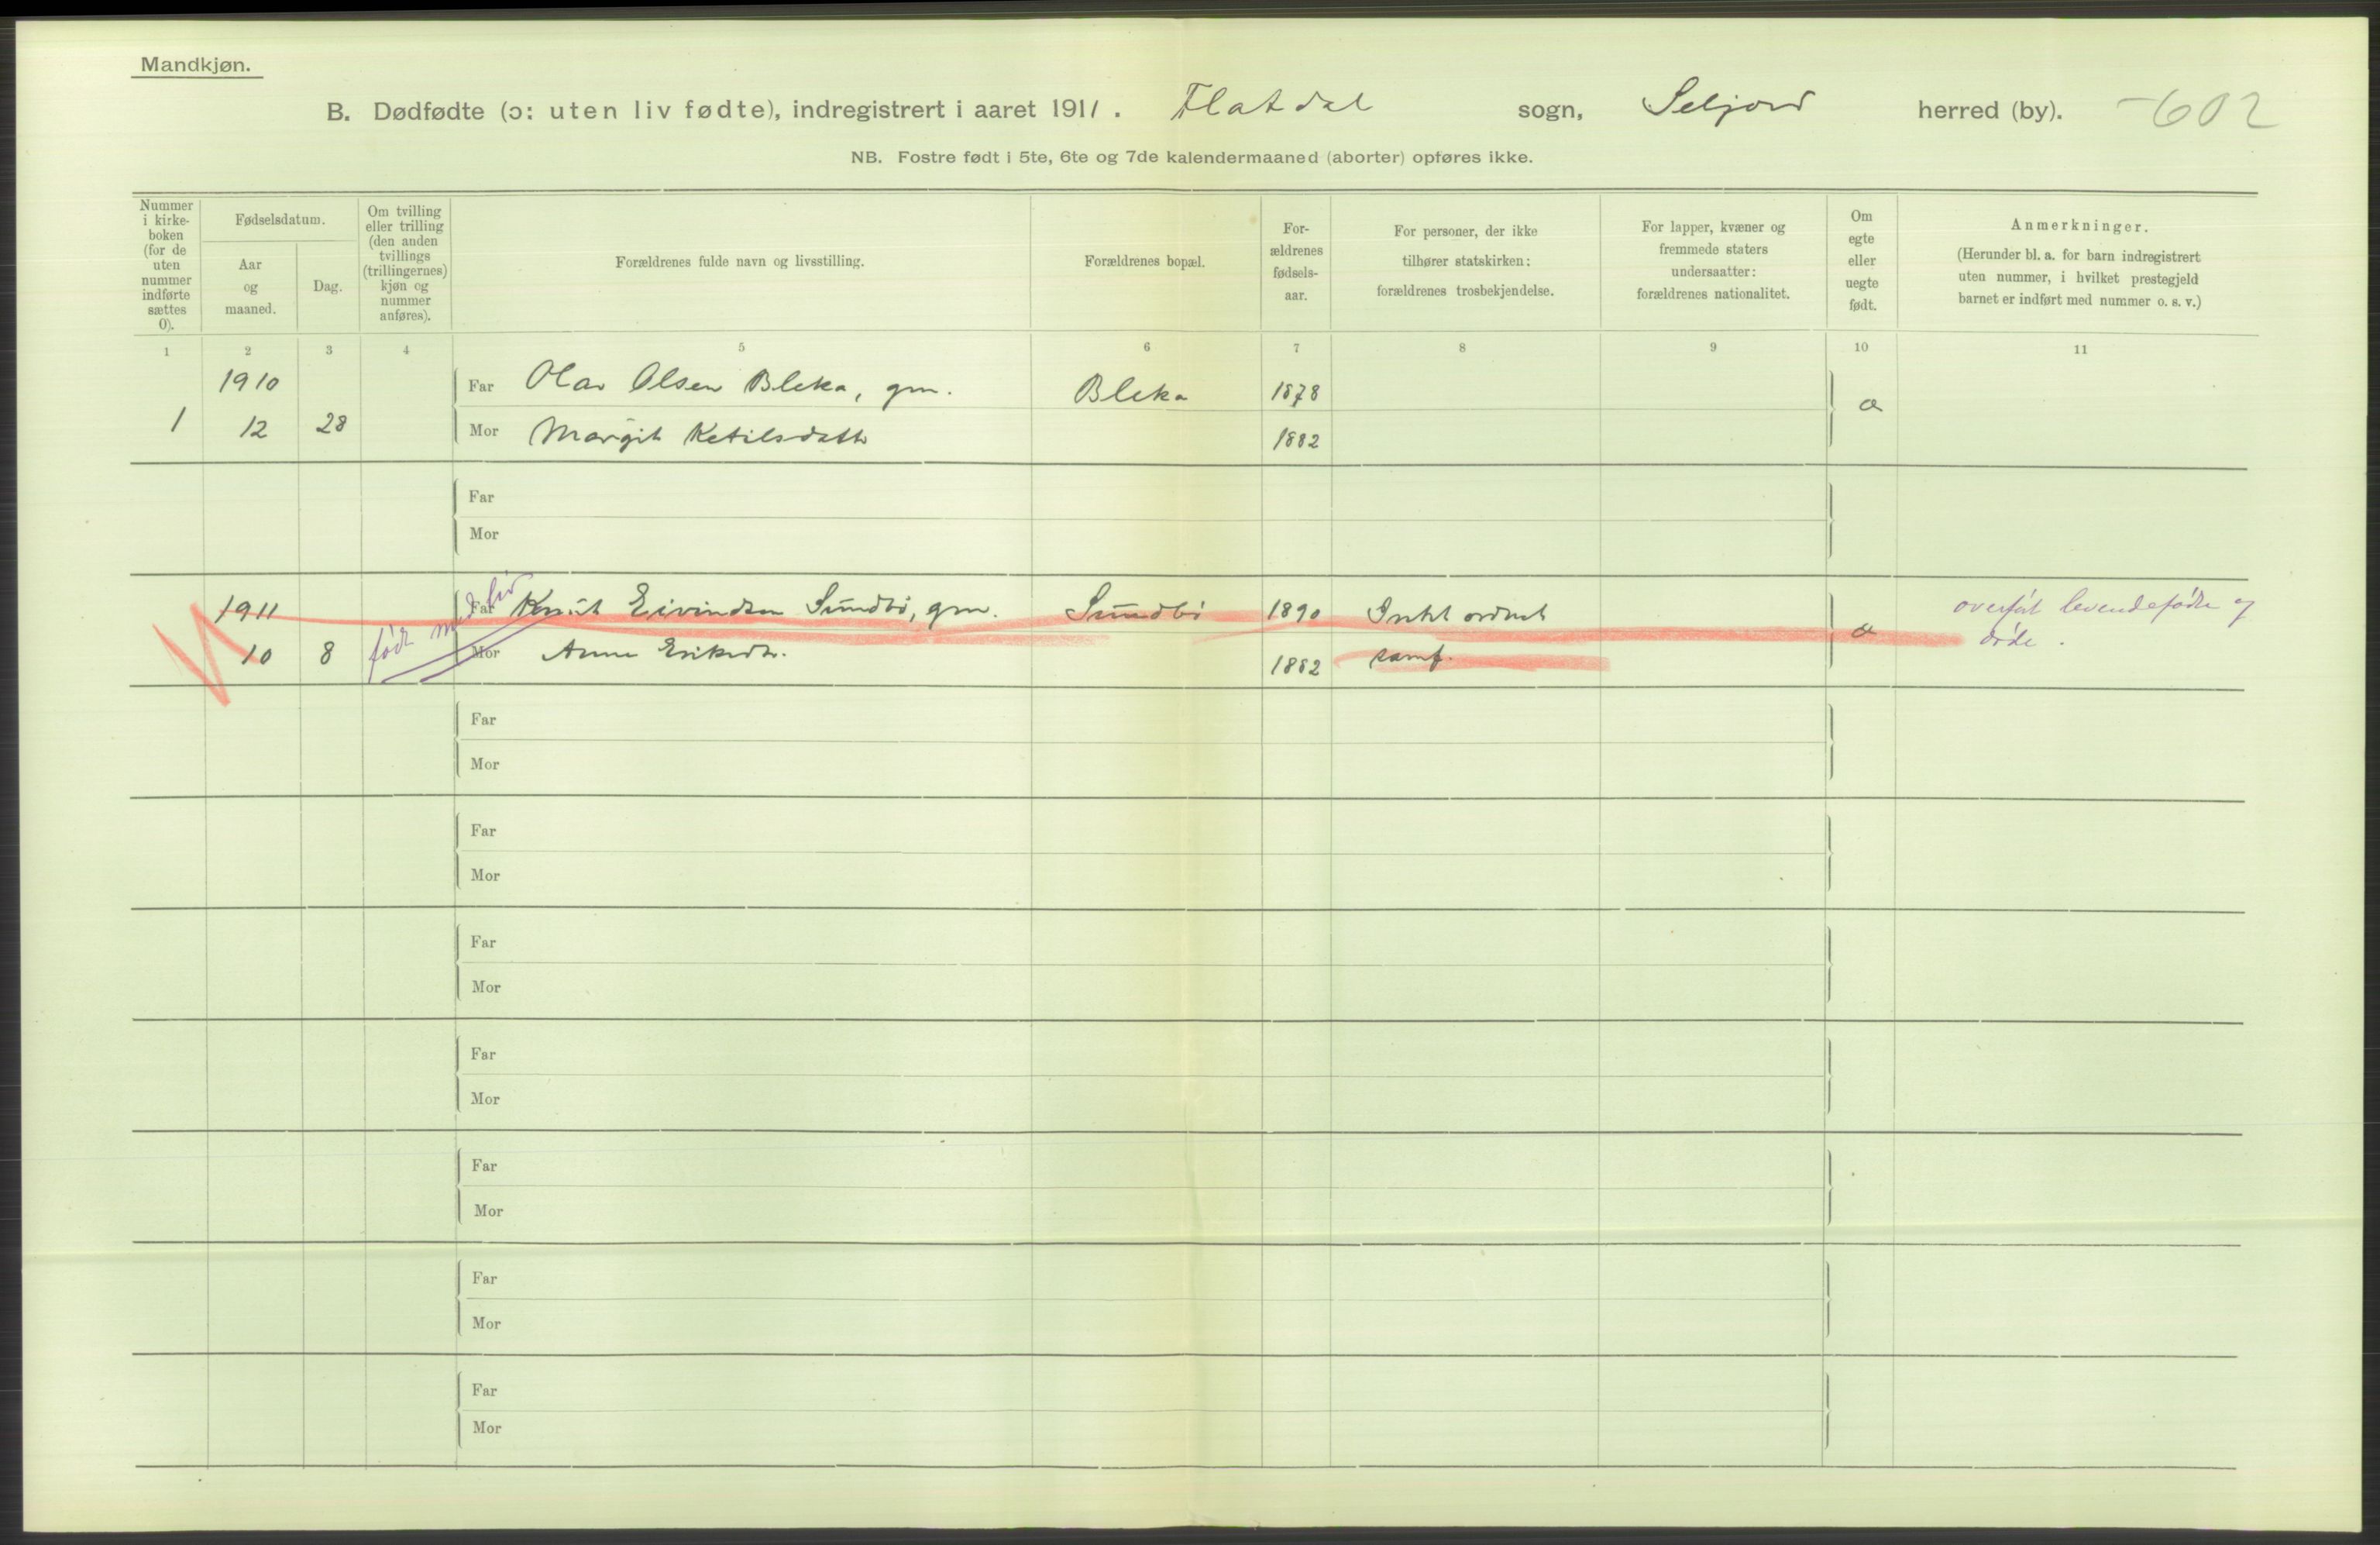 Mandkjøn.
B. Dødfødte (ɔ: uten liv fødte), indregistrert i aaret 1911. Flatdal sogn, Seljord herred (by). -602
NB. Fostre født i 5te, 6te og 7de kalendermaaned (aborter) opføres ikke.
Nummer
i kirke-
boken
(for de
uten
nummer
indførte
sættes
0).
Fødselsdatum.
Aar
og
maaned.
Dag.
Om tvilling
eller trilling
(den anden
tvillings
(trillingernes)
kjøn og
nummer
anføres).
Forældrenes fulde navn og livsstilling.
Forældrenes bopæl.
For-
ældrenes
fødsels-
aar.
For personer, der ikke
tilhører statskirken:
forældrenes trosbekjendelse.
For lapper, kvæner og
fremmede staters
undersaatter:
forældrenes nationalitet.
Om
egte
eller
uegte
født.
Anmerkninger.
(Herunder bl. a. for barn indregistrert
uten nummer, i hvilket prestegjeld
barnet er indført med nummer o. s. v.)
1 2 3 4 5 6 7 8 9 10 11
1910 Far Olav Olsen Bleka, gm. Bleka 1878 æ
1 12 28 Mor Margit Ketilsdatter 1882
Far
Mor
født med liv
1911 Far Knut Eivindsen Sundbø, gm. Sundbø 1890 Intet ordnet æ overført levendefødte og
10 8 Mor Anne Eriksdtr. 1882 samf. døde.
Far
Mor
Far
Mor
Far
Mor
Far
Mor
Far
Mor
Far
Mor
Far
Mor